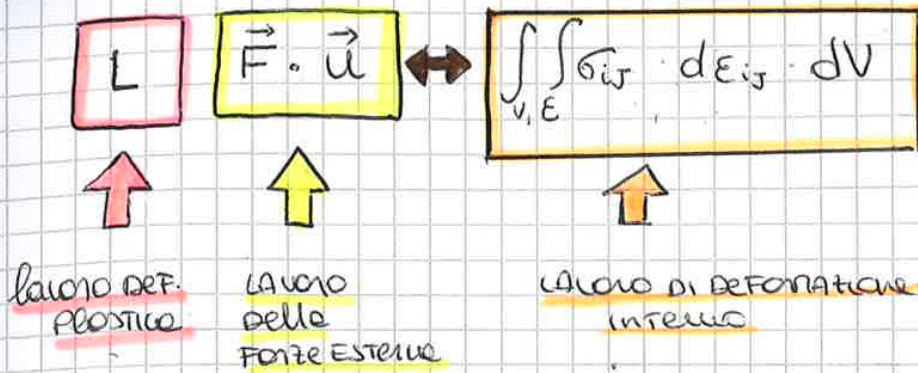 L F⃗ · u⃗ ↔ ∫∫ σij · dεij · dV
V, ε
lavoro DEF. PLASTICA
LAVORO Delle FORZE ESTERNE
LAVORO DI DEFORMAZIONE INTERNO